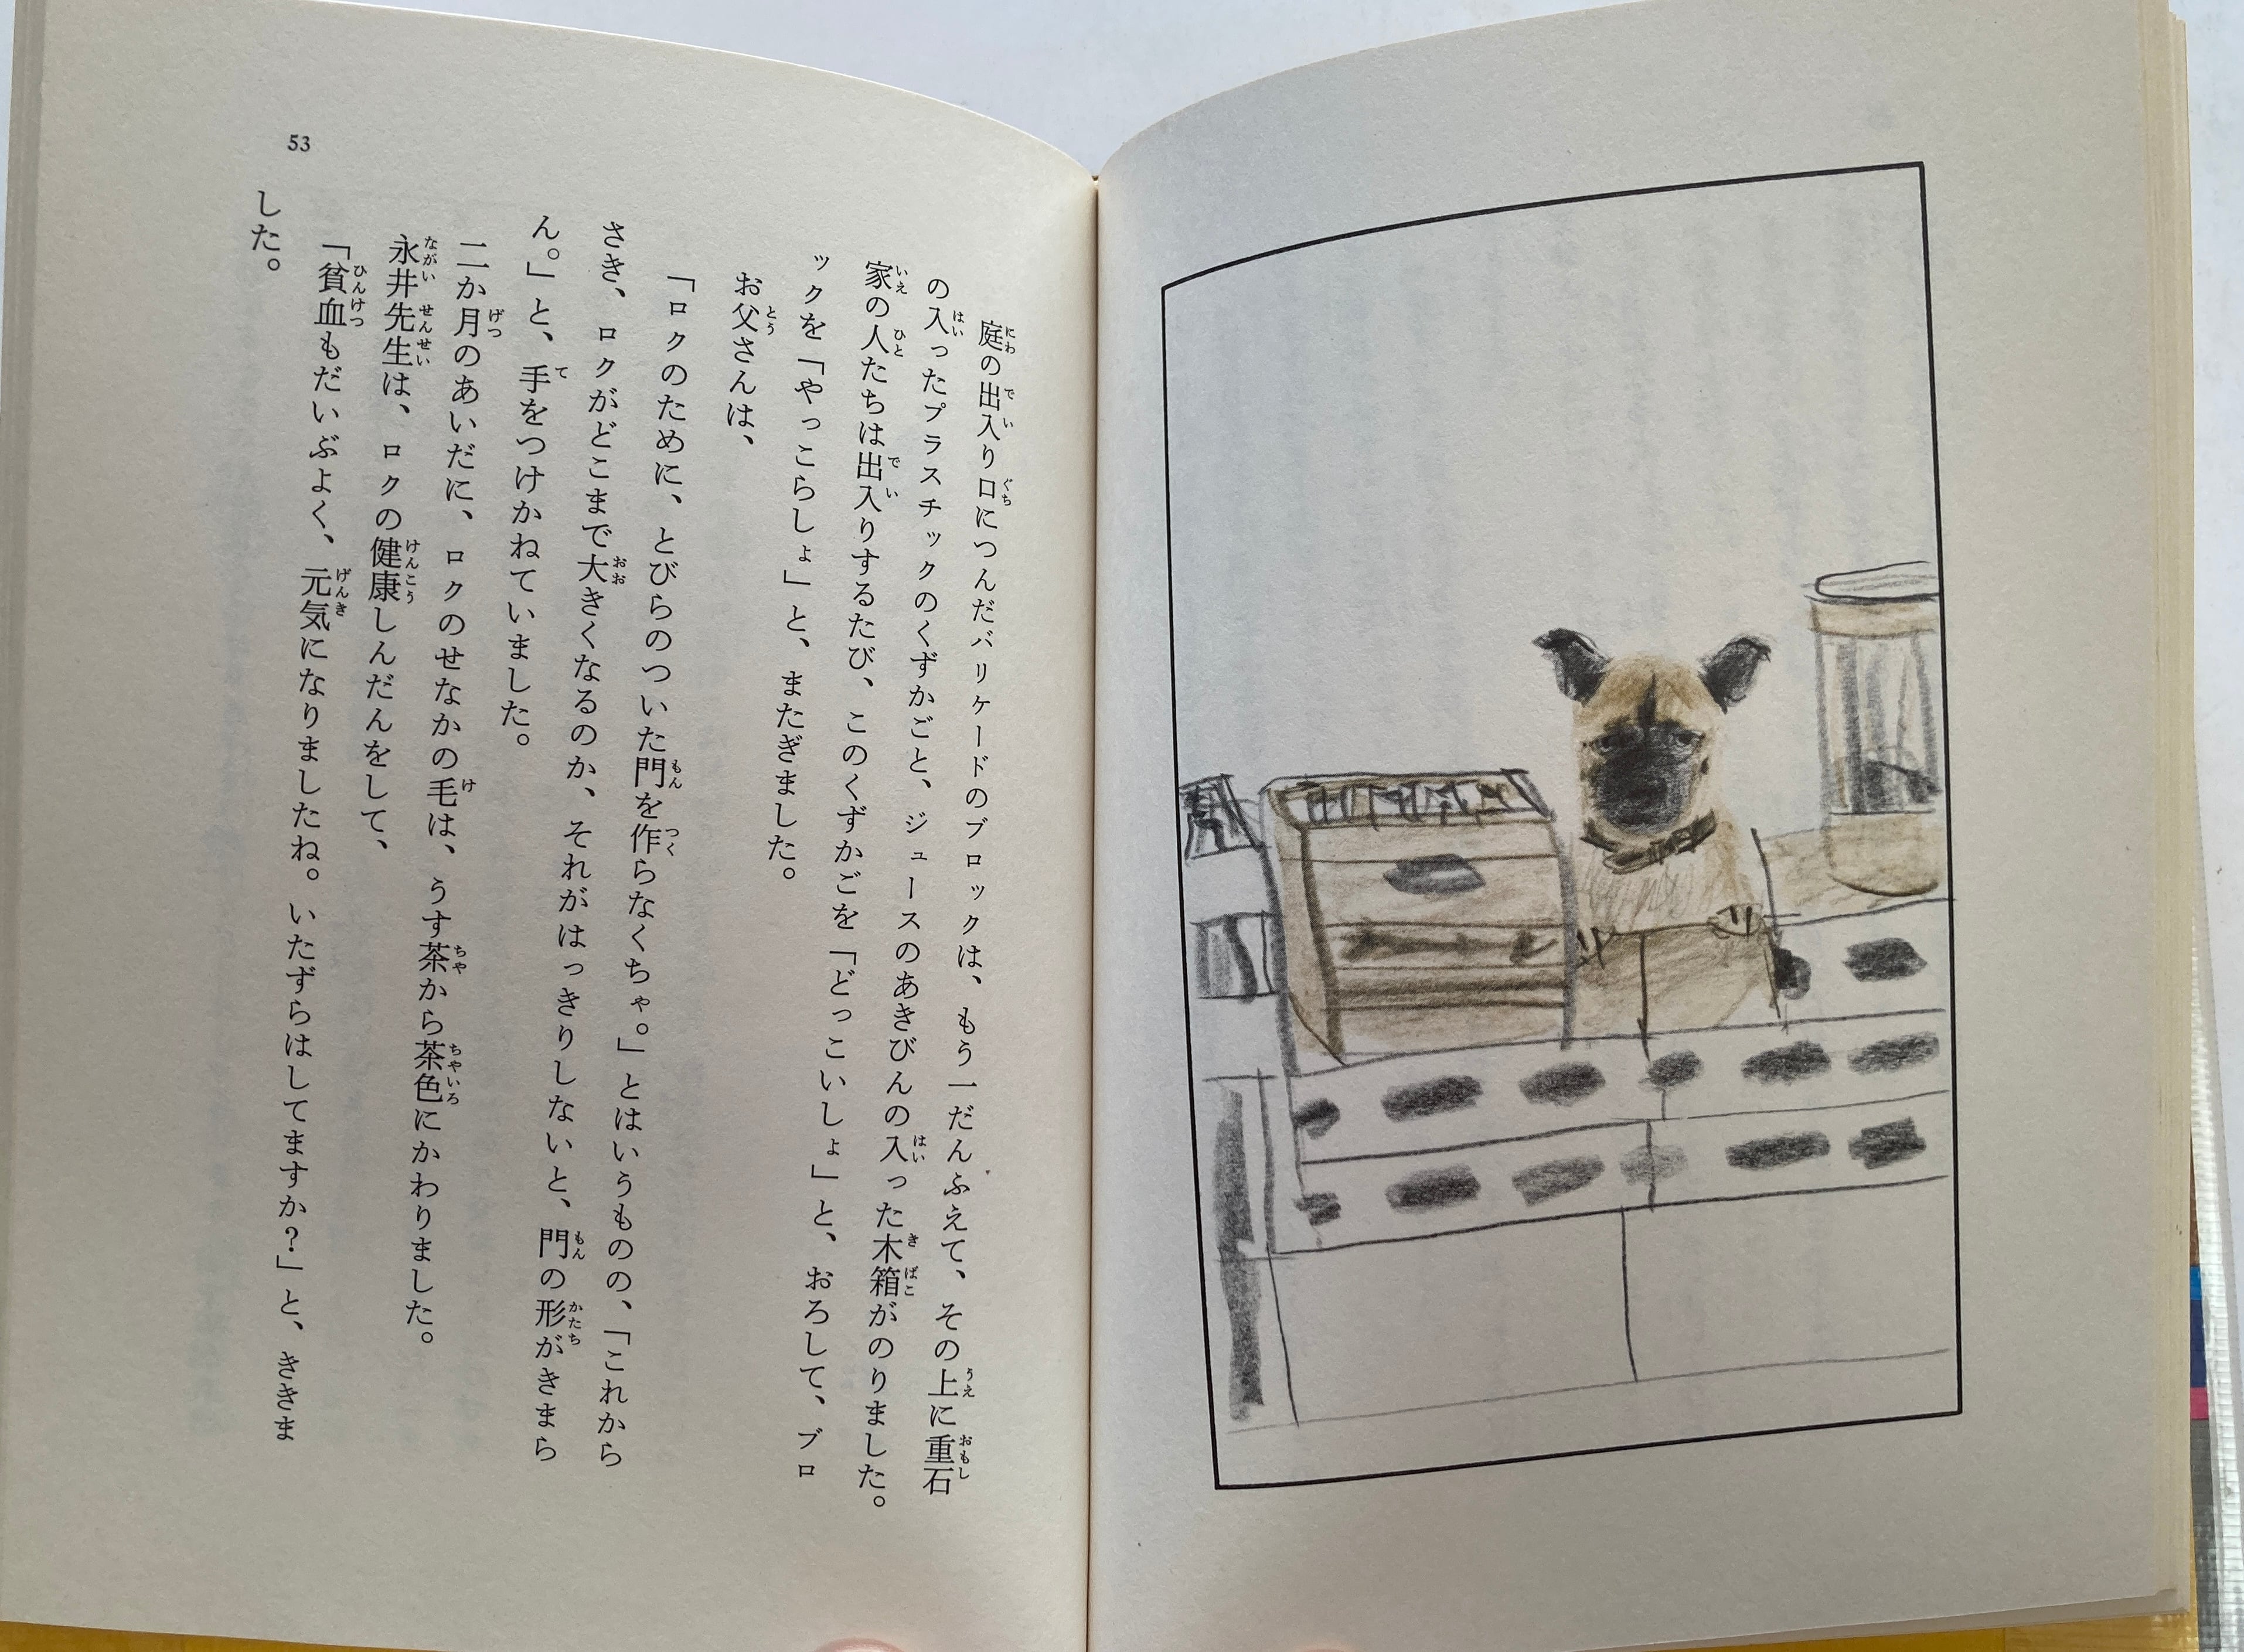 庭の出入り口につんだバリケードのブロックは、もう一だんふえて、その上に重石
の入ったプラスチックのくずかごと、ジュースのあきびんの入った木箱がのりました。
家の人たちは出入りするたび、このくずかごを「どっこいしょ」と、おろして、ブロ
ックを「やっこらしょ」と、またぎました。
お父さんは、
「ロクのために、とびらのついた門を作らなくちゃ。」とはいうものの、「これから
さき、ロクがどこまで大きくなるのか、それがはっきりしないと、門の形がきまら
ん。」と、手をつけかねていました。
二か月のあいだに、ロクのせなかの毛は、うす茶から茶色にかわりました。
永井先生は、ロクの健康しんだんをして、
「貧血もだいぶよく、元気になりましたね。いたずらはしてますか？」と、ききま
した。
53